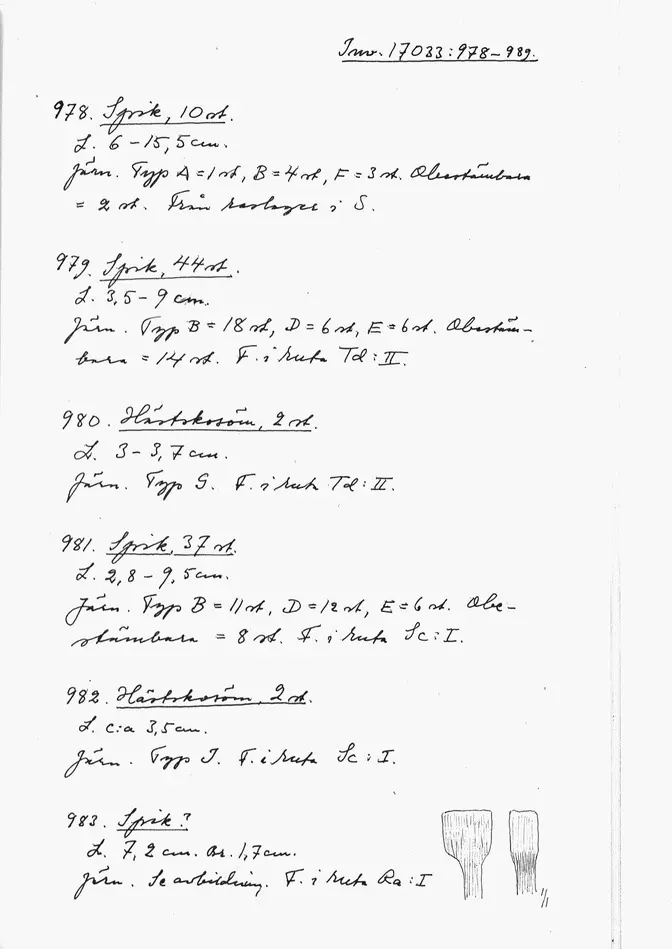 Inv. 17033:978-989.
978. Spik, 10 st.
L. 6-15,5 cm.
Järn. Typ A=1 st, B=4 st, F=3 st. Obestämbara
= 2 st. Från raslager i S.
979. Spik, 44 st.
L. 3,5-9 cm.
Järn. Typ B=18 st, D=6 st, E=6 st. Obestäm-
bara = 14 st. F. i ruta Td:II.
980. Hästskosöm, 2 st.
L. 3-3,7 cm.
Järn. Typ G. F. i ruta Td:II.
981. Spik, 37 st.
L. 2,8-9,5 cm.
Järn. Typ B=11 st, D=12 st, E=6 st. Obe-
stämbara = 8 st. F. i ruta Sc:I.
982. Hästskosöm, 2 st.
L. c:a 3,5 cm.
Järn. Typ J. F. i ruta Sc:I.
983. Spik?
L. 7,2 cm. Br. 1,7 cm.
Järn. Se avbildning. F. i ruta Ra:I
1/1